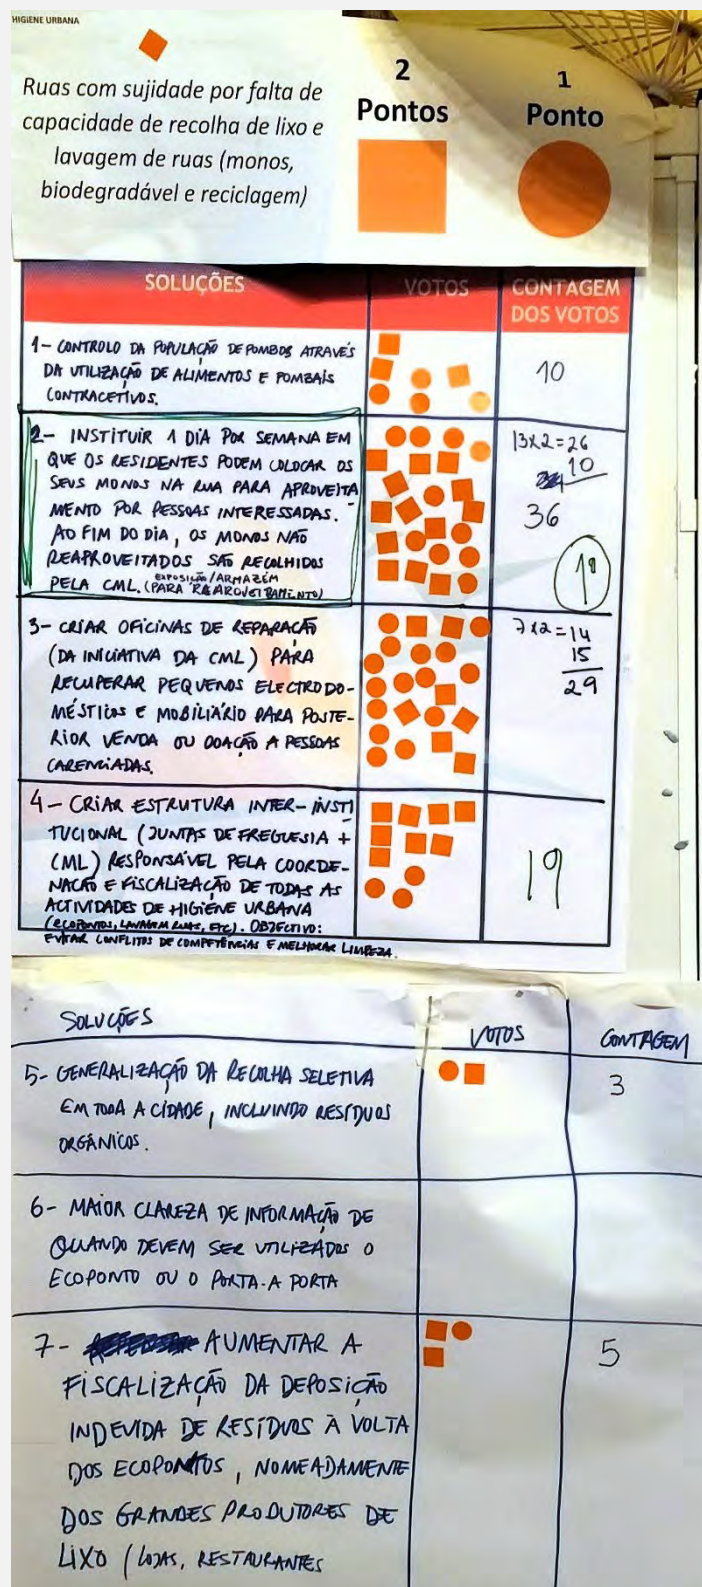 HIGIENE URBANA
Ruas com sujidade por falta de
capacidade de recolha de lixo e
lavagem de ruas (monos,
biodegradável e reciclagem)
2
Pontos
1
Ponto
SOLUÇÕES
VOTOS
CONTAGEM
DOS VOTOS
1- CONTROLO DA POPULAÇÃO DE POMBOS ATRAVÉS
DA UTILIZAÇÃO DE ALIMENTOS E POMBAIS
CONTRACETIVOS.
10
2- INSTITUIR 1 DIA POR SEMANA EM
QUE OS RESIDENTES PODEM COLOCAR OS
SEUS MONOS NA RUA PARA APROVEITA
MENTO POR PESSOAS INTERESSADAS.
AO FIM DO DIA, OS MONOS NÃO
REAPROVEITADOS SÃO RECOLHIDOS
PELA CML. (EXPOSIÇÃO/ARMAZÉM
PARA REAPROVEITAMENTO)
13x2=26
10
36
1º
3- CRIAR OFICINAS DE REPARAÇÃO
(DA INICIATIVA DA CML) PARA
RECUPERAR PEQUENOS ELECTRODO-
MÉSTICOS E MOBILIÁRIO PARA POSTE-
RIOR VENDA OU DOAÇÃO A PESSOAS
CARENCIADAS.
7x2=14
15
29
4- CRIAR ESTRUTURA INTER-INSTI
TUCIONAL (JUNTAS DE FREGUESIA +
CML) RESPONSÁVEL PELA COORDE-
NAÇÃO E FISCALIZAÇÃO DE TODAS AS
ACTIVIDADES DE HIGIENE URBANA
(ECOPONTOS, LAVAGEM RUAS, ETC). OBJECTIVO:
EVITAR CONFLITOS DE COMPETÊNCIAS E MELHORAR LIMPEZA.
19
SOLUÇÕES
VOTOS
CONTAGEM
5- GENERALIZAÇÃO DA RECOLHA SELETIVA
EM TODA A CIDADE, INCLUINDO RESÍDUOS
ORGÂNICOS.
3
6- MAIOR CLAREZA DE INFORMAÇÃO DE
QUANDO DEVEM SER UTILIZADOS O
ECOPONTO OU O PORTA-A PORTA
7- AUMENTAR A
FISCALIZAÇÃO DA DEPOSIÇÃO
INDEVIDA DE RESÍDUOS À VOLTA
DOS ECOPONTOS, NOMEADAMENTE
DOS GRANDES PRODUTORES DE
LIXO (LOJAS, RESTAURANTES
5